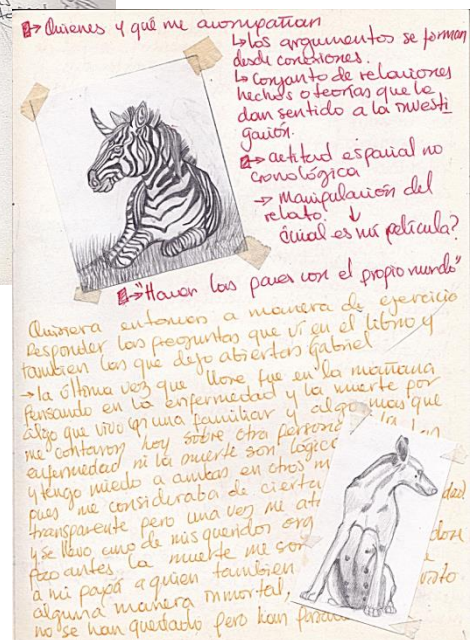 Quienes y qué me acompañan
↳ los argumentos se forman
desde conexiones.
↳ Conjunto de relaciones
hechos o teorías que le
dan sentido a la investi
gación.
→ actitud espacial no
cronológica
→ Manipulación del
relato. ↓
¿cual es mi película?
→ "Hacer las paces con el propio mundo"
Quisiera entonces a manera de ejercicio
Responder las preguntas que ví en el libro y
tambien las que dejo abiertas Gabriel
→ la última vez que llore fue en la mañana
Pensando en la enfermedad y la muerte por
algo que vivo con una familiar y algo mas que
me contaron hoy sobre otra persona
enfermedad ni la muerte son lógica
y tengo miedo a ambas en otros m
pues me consideraba de cierta dad
transparente pero una vez me at
y se llevo uno de mis queridos
poco antes la muerte me sor
a mi papá a quien tambien
alguna manera inmortal,
no se han quedado pero han